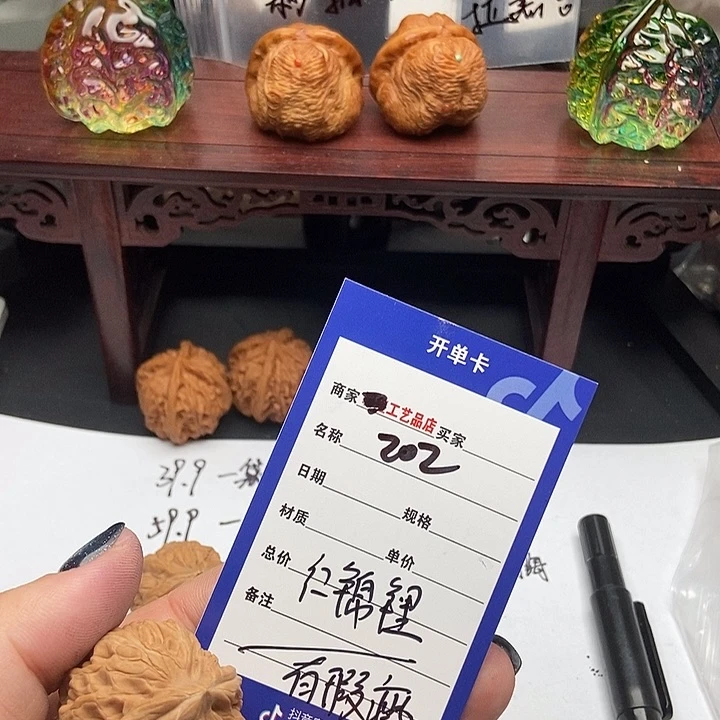 开单卡
商家 工艺品店 买家
名称 202
日期
材质 规格
总价 单价
仁锦鲤
备注
有瑕疵
抖音
39.9 一袋
59.9 一